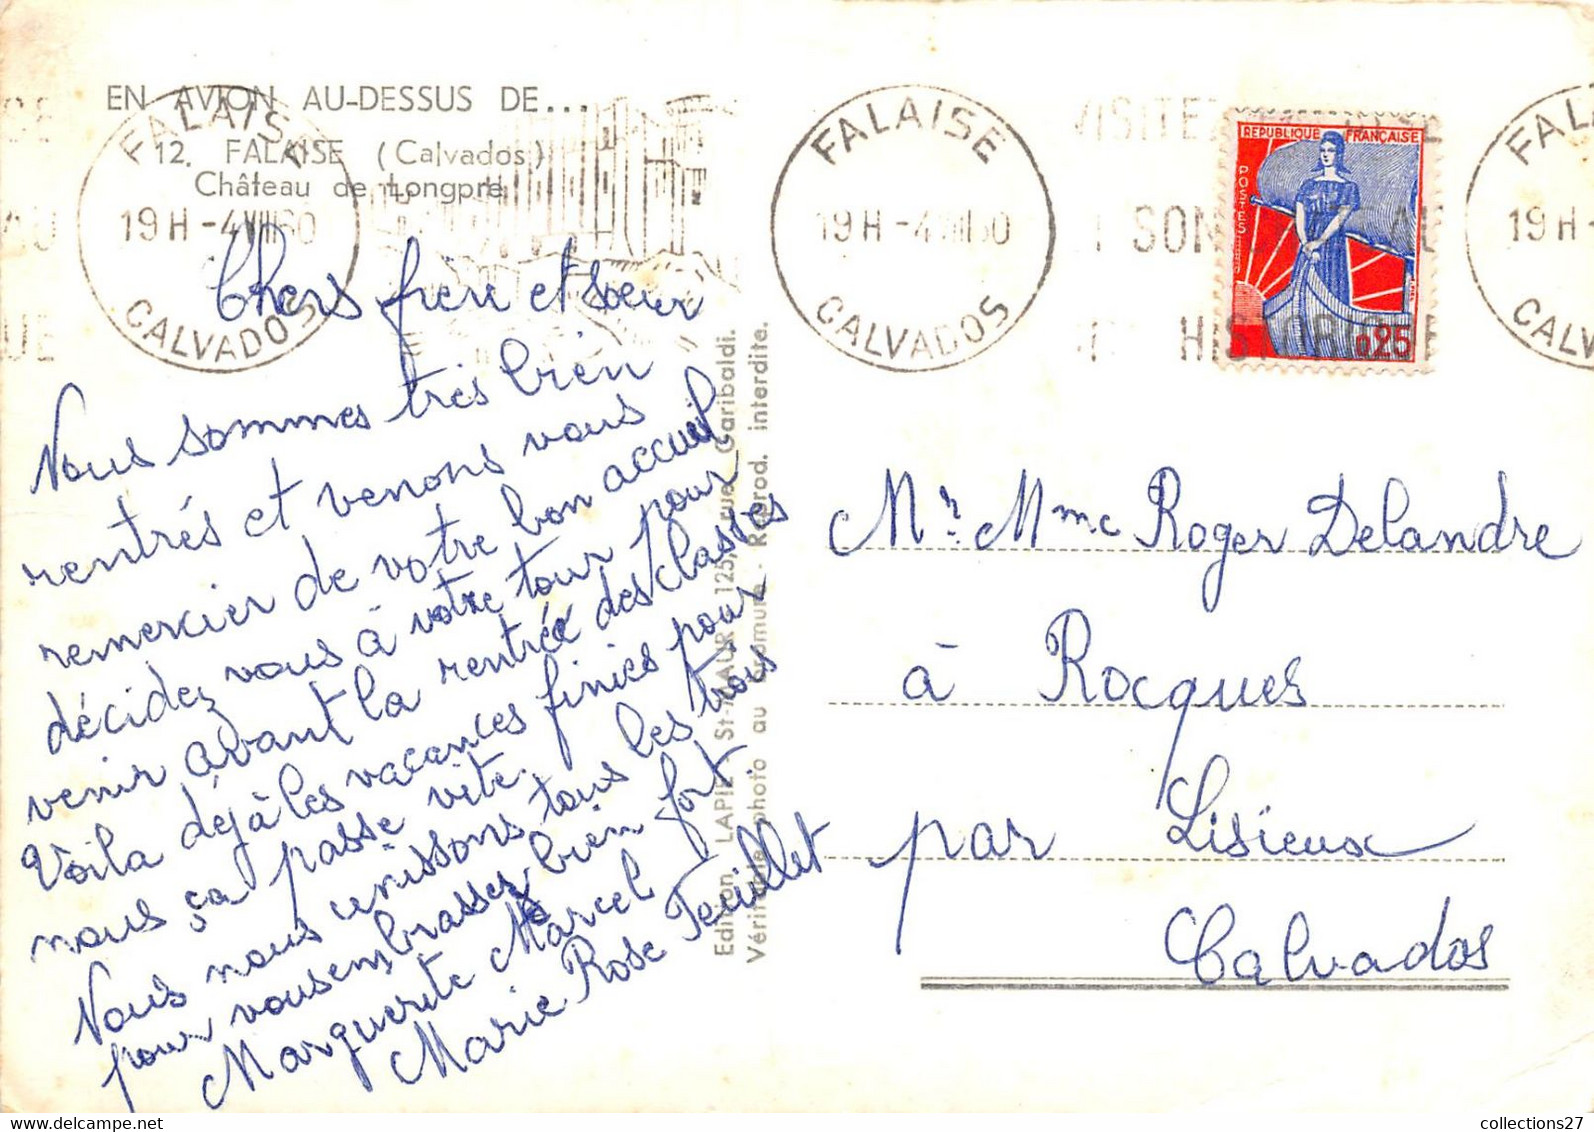 EN AVION AU-DESSUS DE...
12. FALAISE (Calvados)
Château de Longpré
FALAISE
19H -4 VIII 60
CALVADOS
FALAISE
19H -4 VIII 60
CALVADOS
VISITEZ
SON
HISTORIQUE
REPUBLIQUE FRANÇAISE
POSTES
0,25
19H -
Chers frere et soeur
Nous sommes très bien
rentrés et venons vous
remercier de votre bon accueil
décidez vous à votre tour pour
venir avant la rentrée des classes
Voila déjà les vacances finies pour
nous ça passe vite.
Nous nous unissons tous les trois
pour vous embrasser bien fort.
Marguerite Marcel
Marie Rose Teuillet
Edition LAPIE - St-MAUR 125, rue Garibaldi.
Véritable photo au bromure - Reprod. interdite.
Mr Mme Roger Delandre
à Rocques
par Lisieux
Calvados
collections27